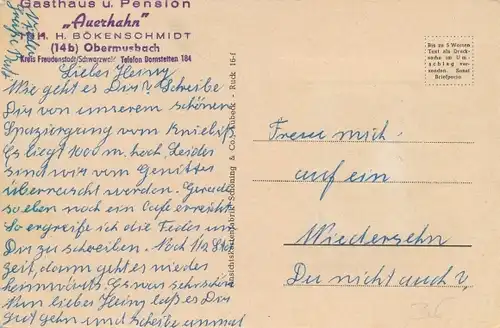 Gasthaus u. Pension
„Auerhahn"
H. BÖKENSCHMIDT
(14b) Obermusbach
Kreis Freudenstadt/Schwarzwald Telefon Dornstetten 184
Lieber Heinz
Wie geht es Dir? Schreibe
Dir von unserem schönen
Spaziergang vom Kniebis.
Es liegt 1000 m. hoch. Leider
sind wir vom Gewitter
überrascht worden. Gerade
so eben noch ein Cafe erreicht
So ergreife ich die Feder um
Dir zu schreiben. Noch 1/2 Std
Zeit, dann geht es wieder
heimwärts. Es war sehr schön
Nun lieber Heinz laß es Dir
gut gehn und schreibe einmal
Ansichtskartenfabrik Schöning & Co., Lübeck - Ruck 16-f
Bis zu 5 Worten
Text als Druck-
sache im Um-
schlag ver-
senden. Sonst
Briefporto
Freue mich
auf ein
Wiedersehn
Du nicht auch?